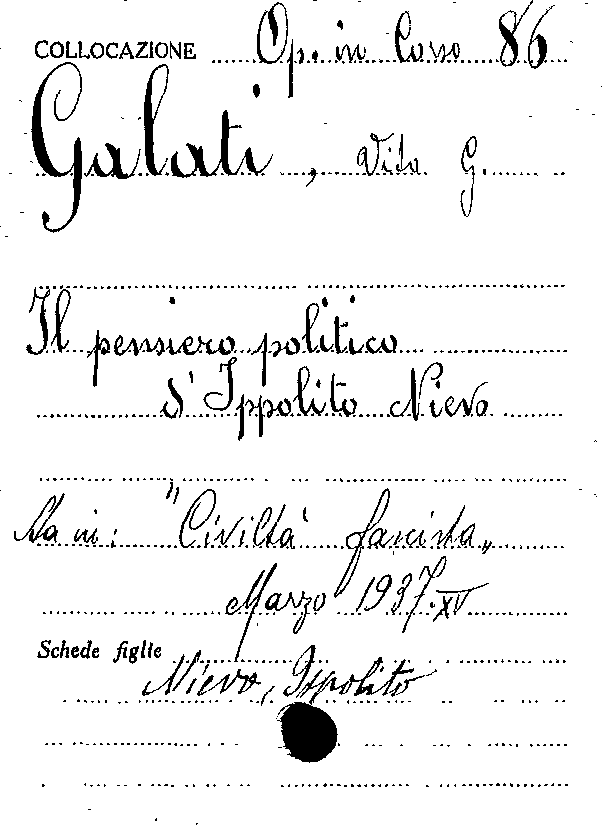 COLLOCAZIONE Op. in Corso 86
Galati, Vito G.
Il pensiero politico
d'Ippolito Nievo
Sta in: "Civiltà fascista„
Marzo 1937.XV
Schede figlie
Nievo, Ippolito